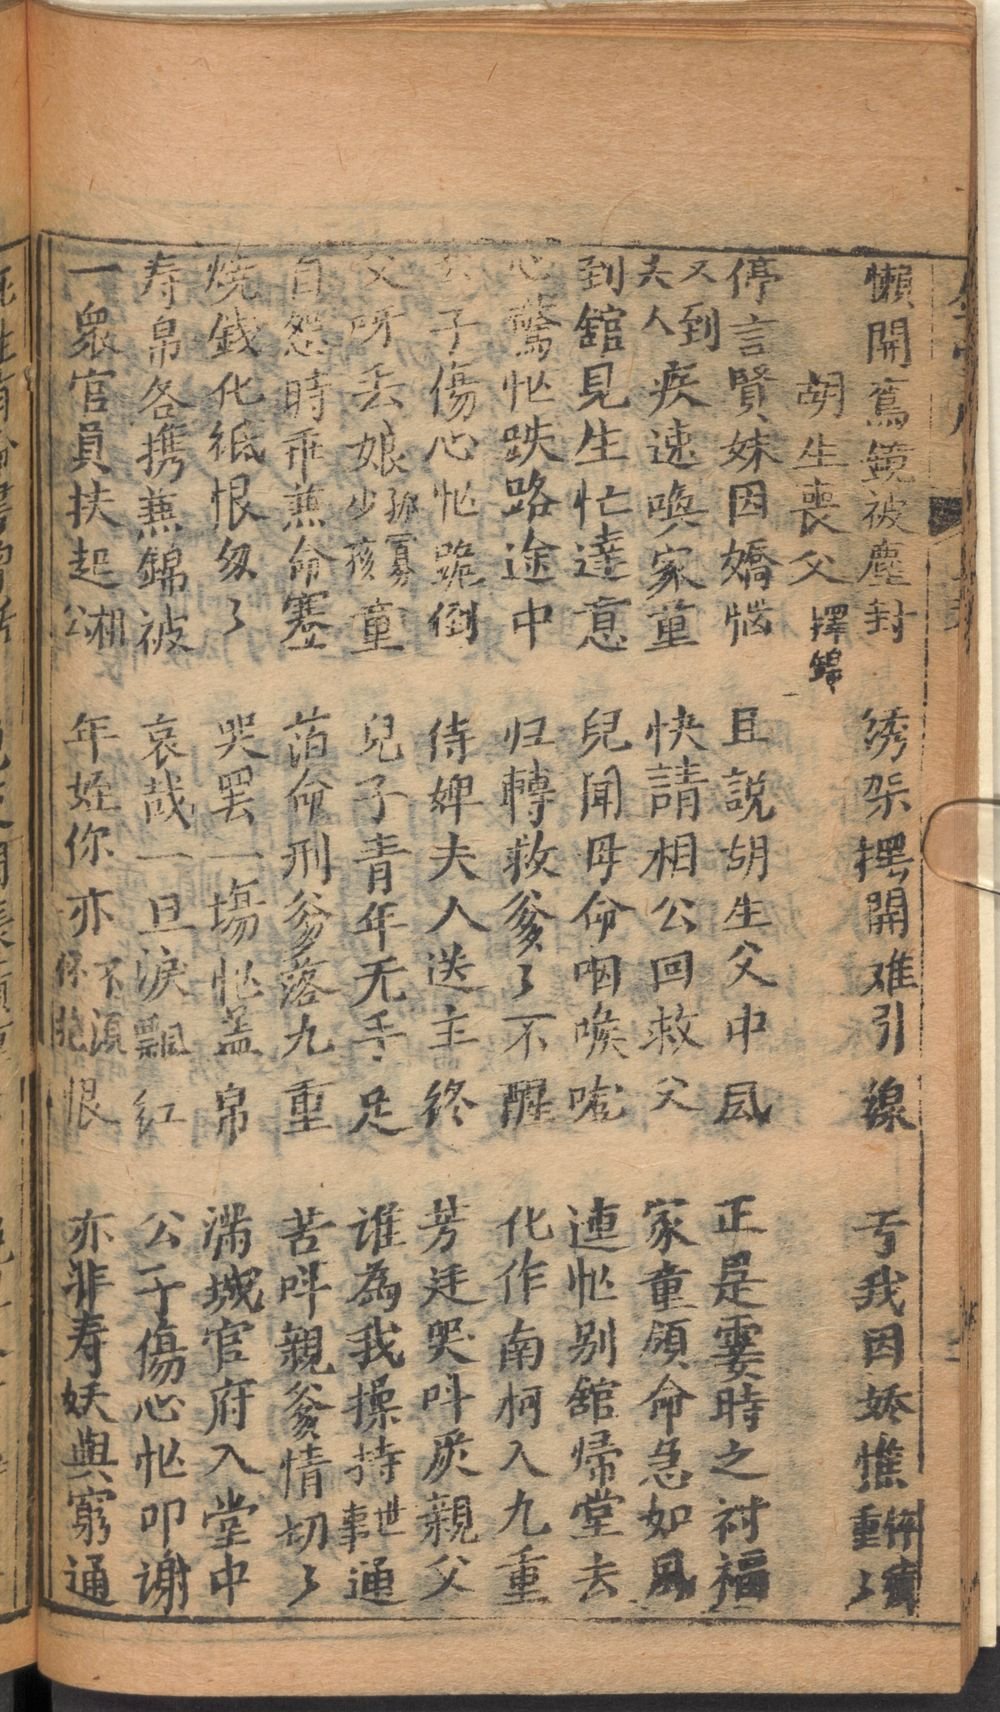 懶開鸞鏡被塵封 綉架擇開难引線 亏我因娇憔悴實重々
胡生喪父 擇錦
停言賢妹因嬌惱 且説胡生父中风 正是霎時之禍福
夫人又到疾速喚家童 快請相公回救父 家童領命急如風
到舘見生忙達意 兒聞母命咽喉 連忙别舘帰堂去
心驚忙跌路途中 归轉救爹々不醒 化作南柯入九重
子傷心忙跪倒 侍婢夫人送主終 芳廷哭呌爰親父
父呀丢娘孤寡少孩童 兒子青年无手足 谁為我操持世事通
自怨時乖兼命蹇 萡命刑爹落九重 苦呌親爹情切々
烧錢化紙恨匆々 哭罢一塲忙盖帛 满城官府入堂中
寿帛各携兼錦被 哀哉一旦淚飄红 公子傷心忙叩谢
一衆官員扶起公 年姪你亦不須怀恨 亦非寿妖與窮通